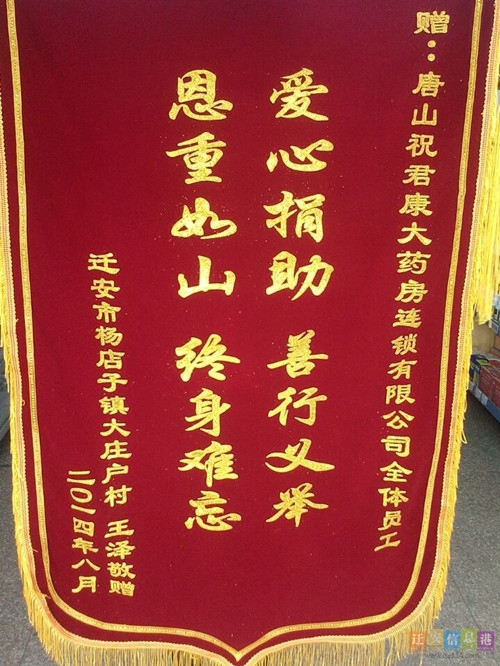 赠：唐山祝君康大药房连锁有限公司全体员工
爱心捐助 善行义举
恩重如山 终身难忘
迁安市杨店子镇大庄户村 王泽敬赠
二〇一四年八月
迁安信息港